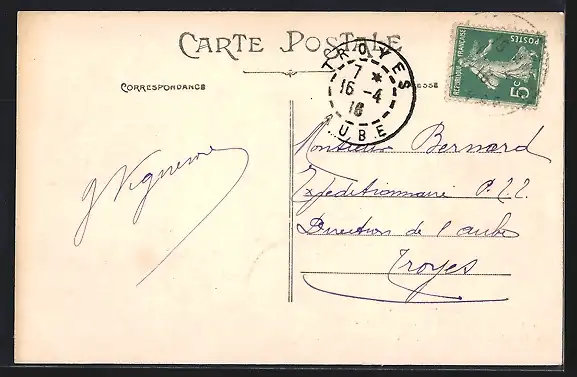 CARTE POSTALE
CORRESPONDANCE
ESSE
TROYES
7 *
16 - 4
16
AUBE
RÉPUBLIQUE FRANÇAISE
POSTES
5c
Monsieur Bernard
Expéditionnaire P.
Direction de l'aube
Troyes
J Vigneron